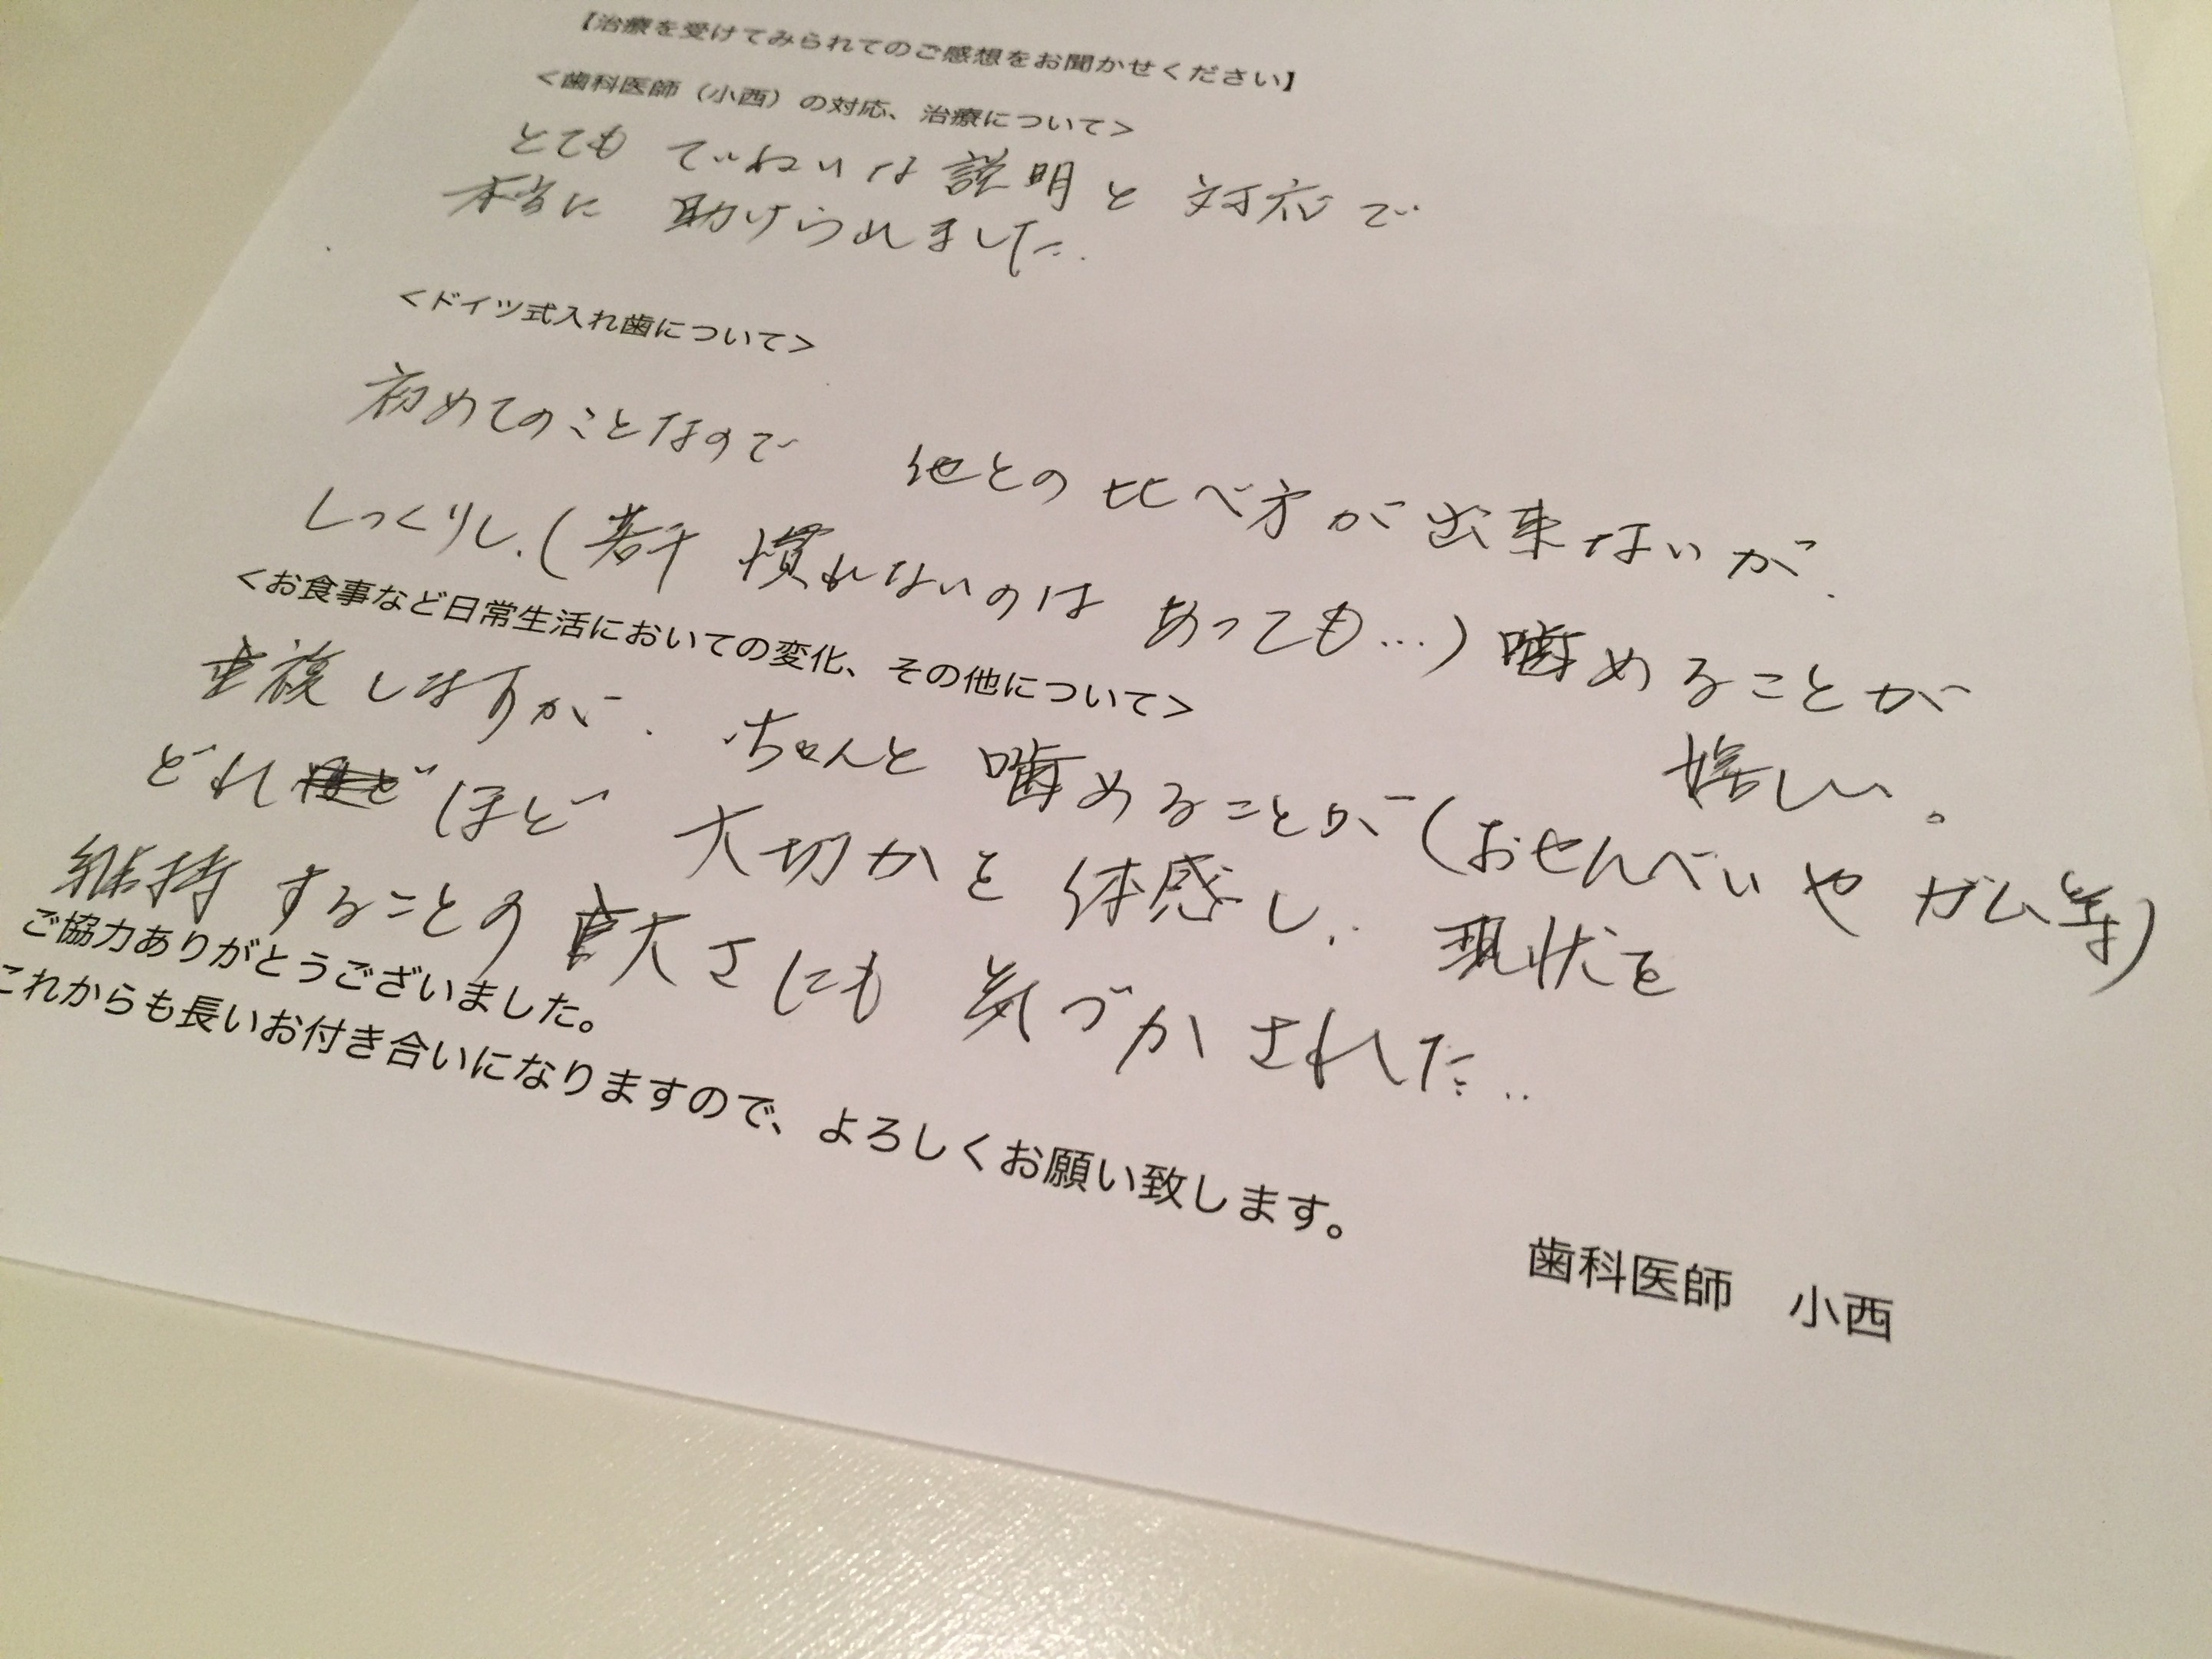 【治療を受けてみられてのご感想をお聞かせください】
＜歯科医師（小西）の対応、治療について＞
とても ていねいな説明と 対応で
本当に 助けられました.
＜ドイツ式入れ歯について＞
初めてのことなので 他との比べ方が出来ないが.
しっくりし.(若干 慣れないのは あっても…)噛めることが
嬉しい。
＜お食事など日常生活においての変化、その他について＞
重複しますが. ちゃんと 噛めることが(おせんべいや ガム等)
どれ ほど 大切かと 体感し.. 現状を
維持 することの 重大さにも 気づかされた..
ご協力ありがとうございました。
これからも長いお付き合いになりますので、よろしくお願い致します。
歯科医師 小西